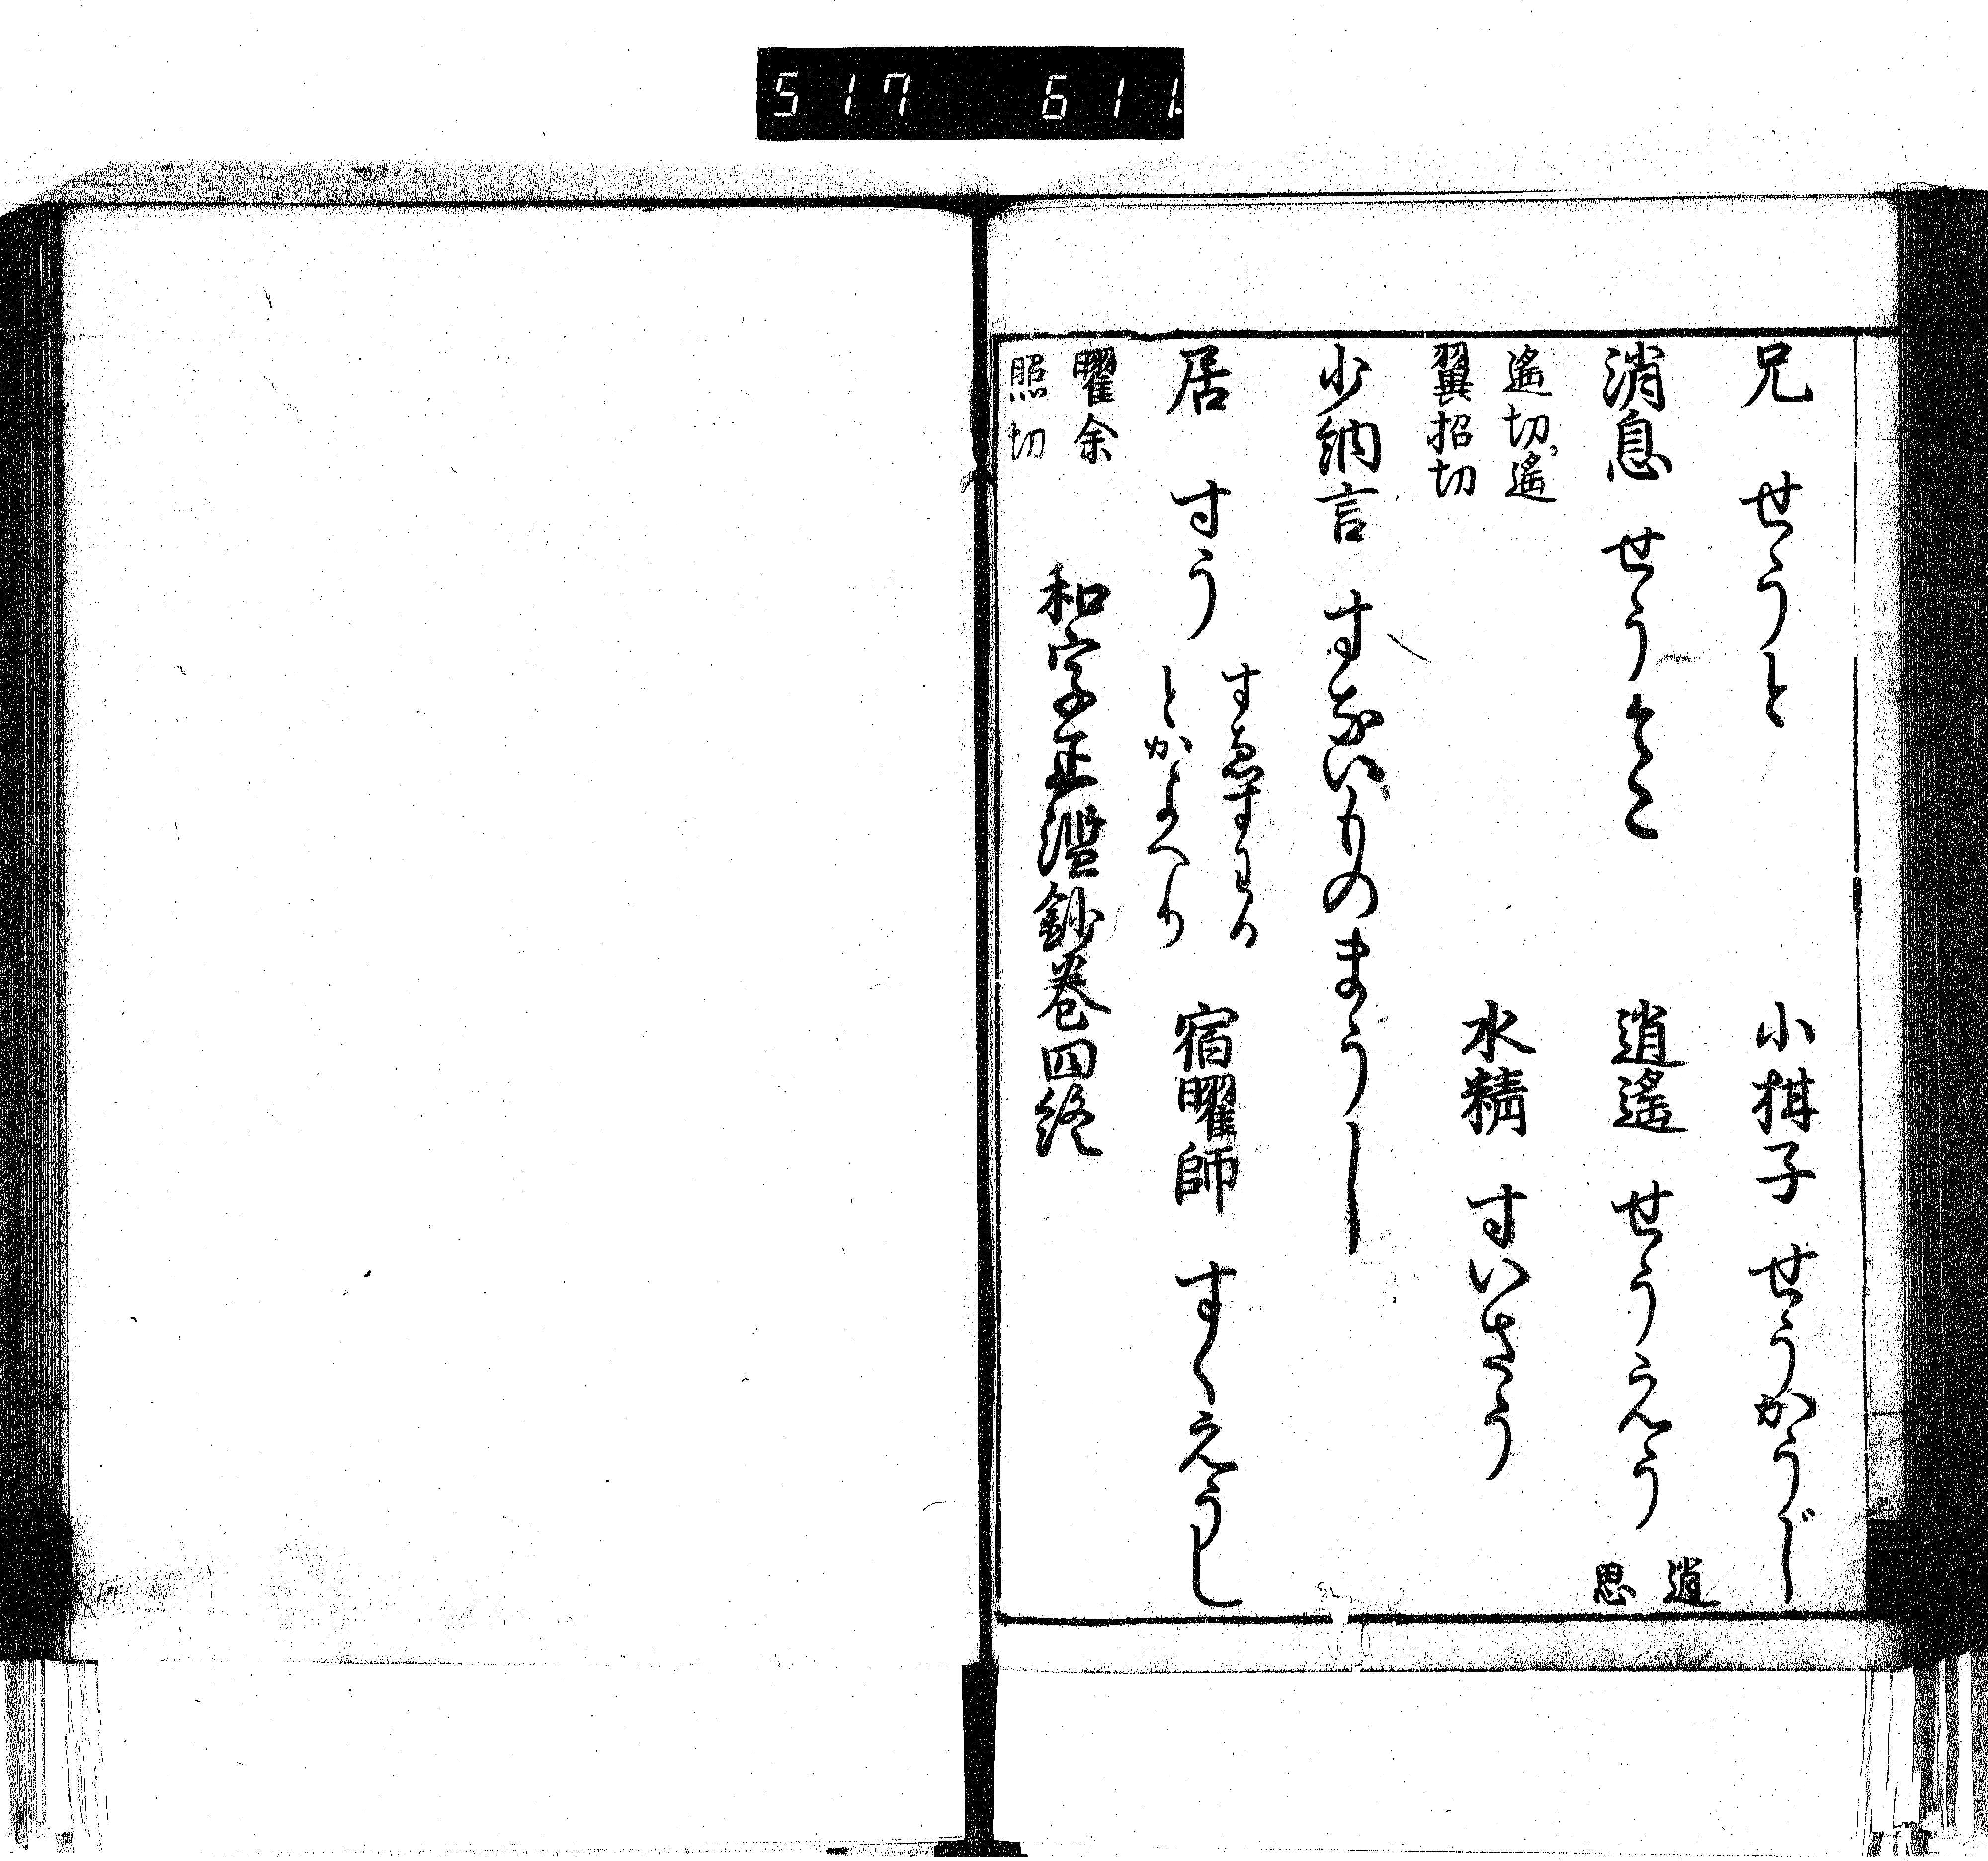 517 611
兄 せうと 小柑子 せうかうじ
消息 せうそこ 逍遙 せうえう 逍思
遙切遙翼招切 水精 すいさう
少納言 すないものまうし
居 すう すゑすわるとかよへり 宿曜師 すくえうし
曜余照切 和字正濫鈔巻四終